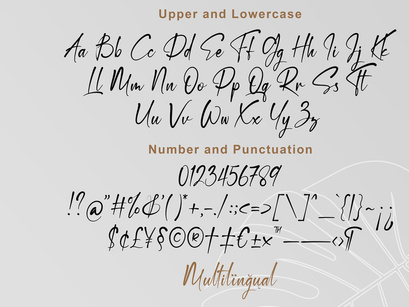 Upper and Lowercase
Aa Bb Cc Dd Ee Ff Gg Hh Ii Jj Kk
Ll Mm Nn Oo Pp Qq Rr Ss Tt
Uu Vv Ww Xx Yy Zz
Number and Punctuation
0123456789
!?@"#%&'()*+,-./:;<=>[\]^_`{|}~¡¿
$¢£¥§©®†‡€±×™—―‹›¶
Multilingual